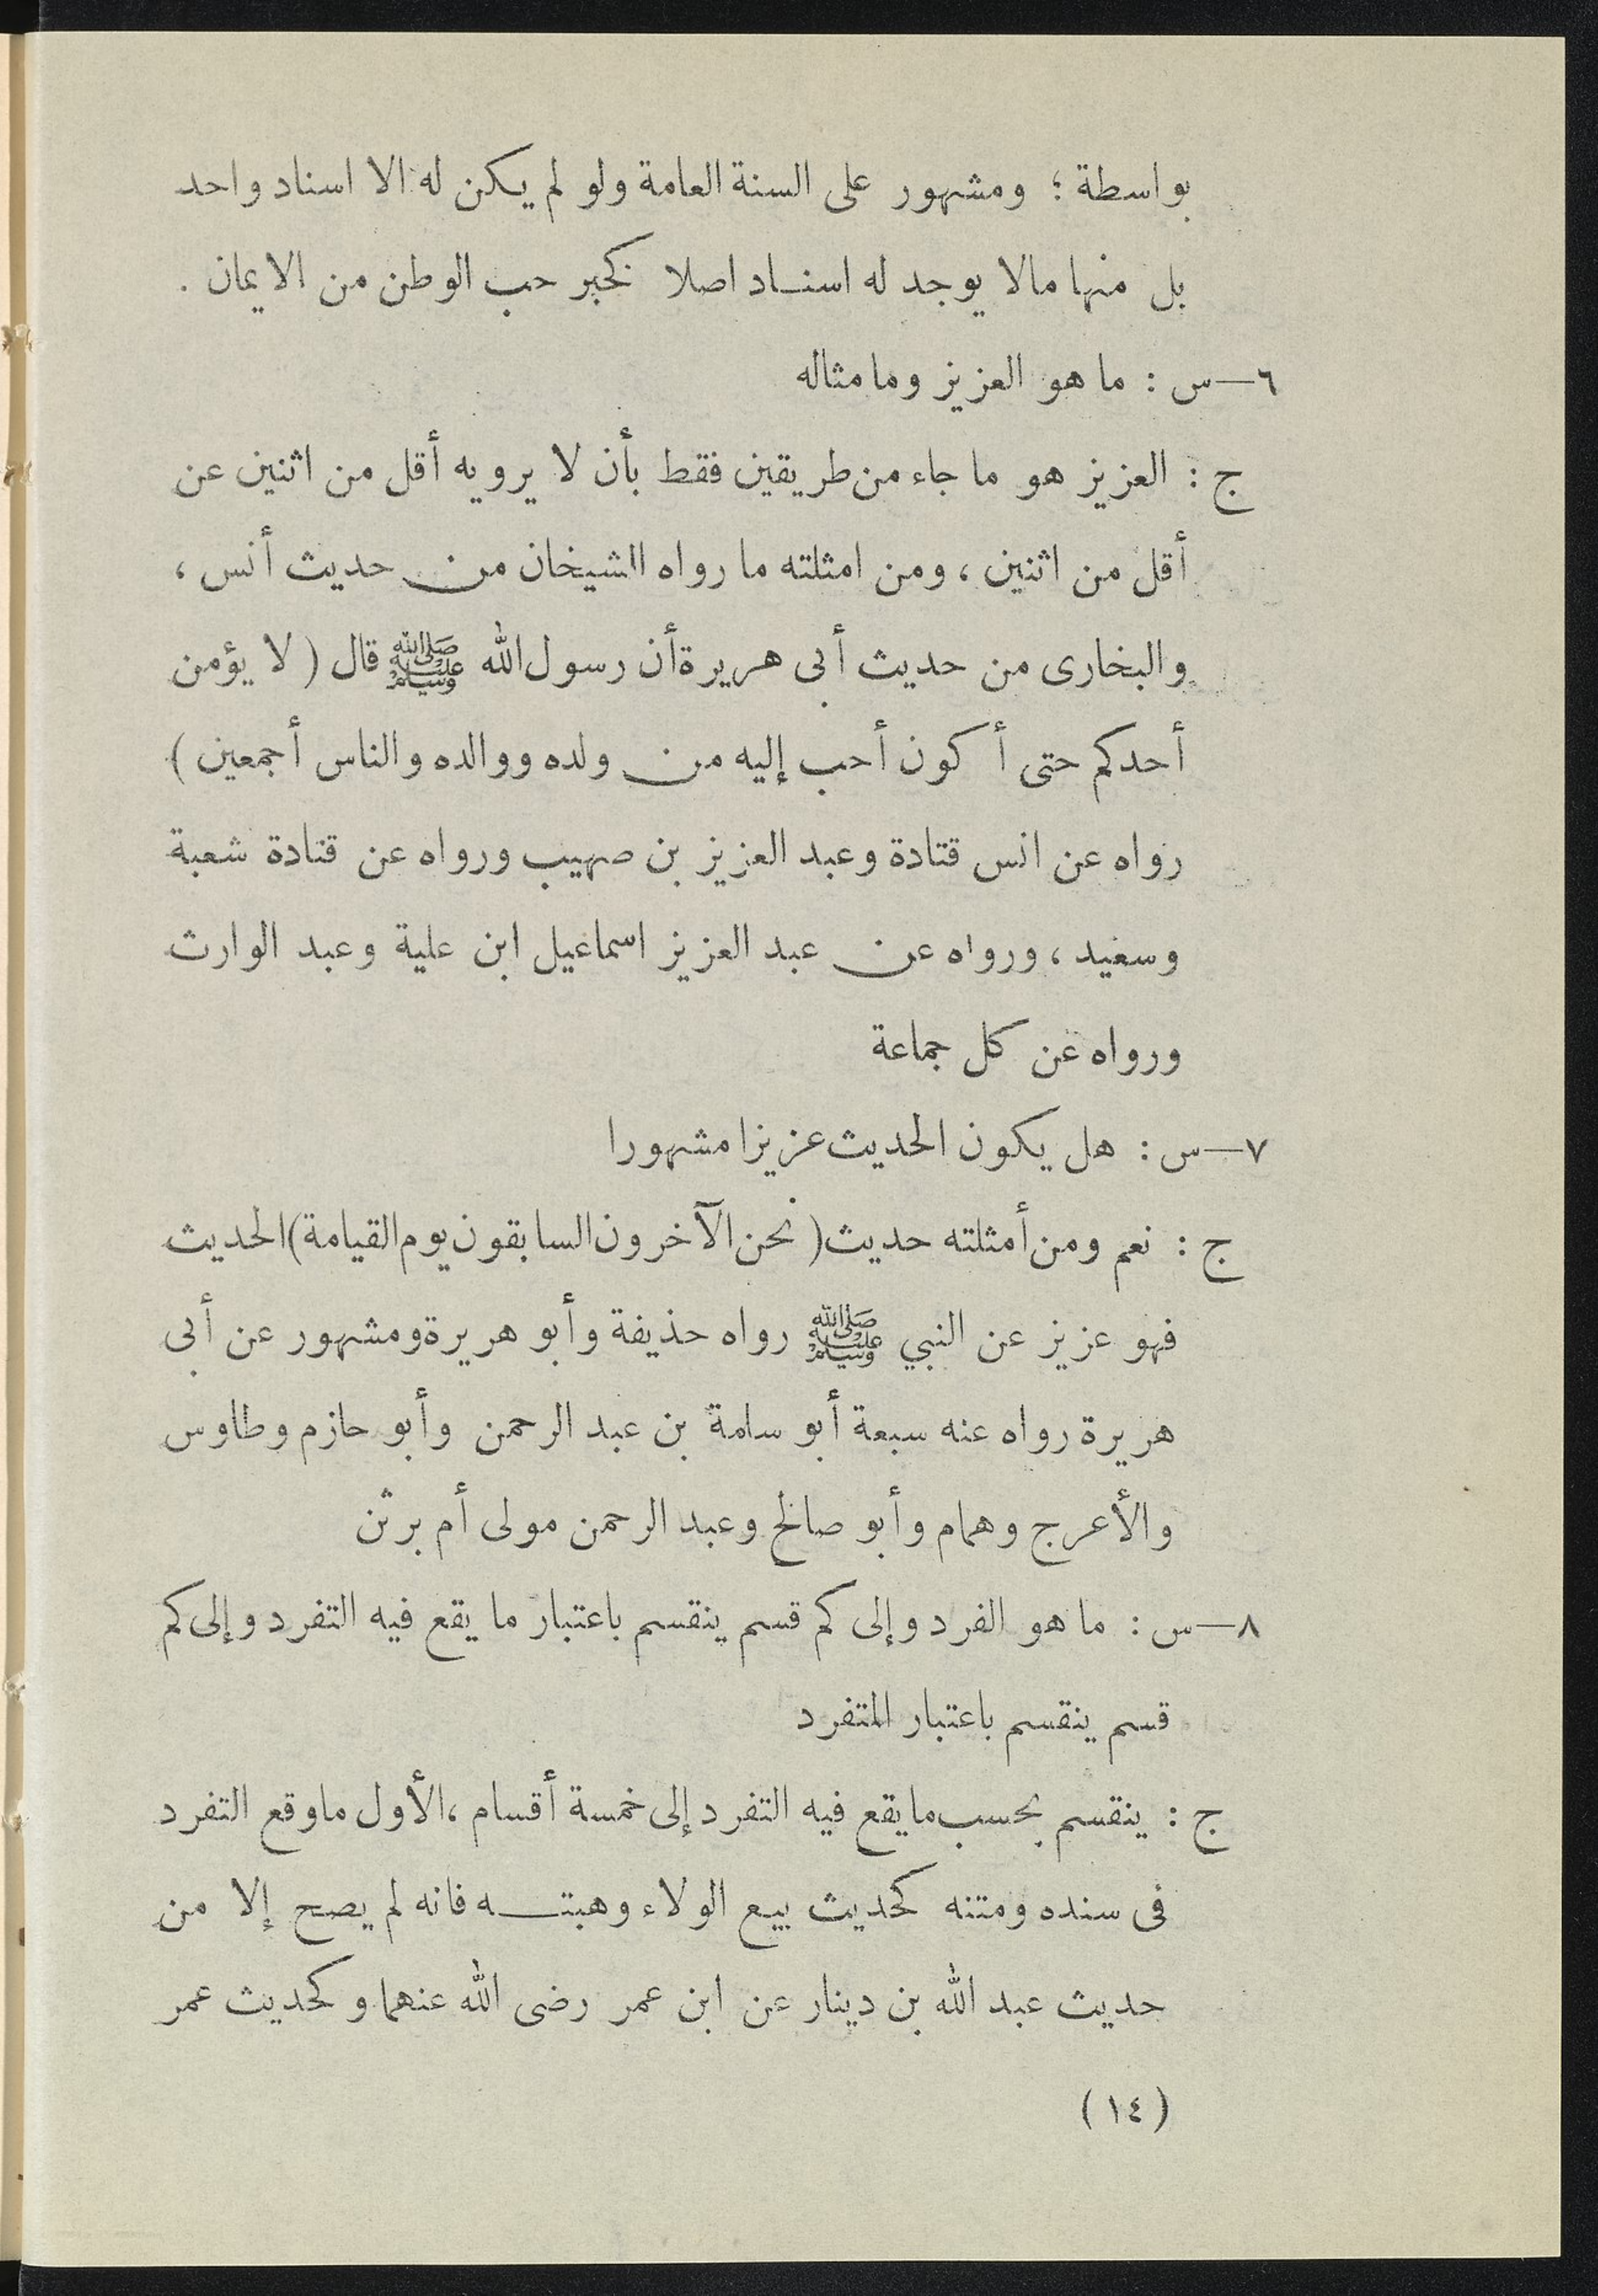 بواسطة ؛ ومشهور على السنة العامة ولو لم يكن له الا اسناد واحد
بل منها مالا يوجد له اسناد اصلا كخبر حب الوطن من الايمان .
٦—س : ما هو العزيز وما مثاله
ج : العزيز هو ما جاء من طريقين فقط بأن لا يرويه أقل من اثنين عن
أقل من اثنين ، ومن امثلته ما رواه الشيخان من حديث أنس ،
والبخارى من حديث أبى هريرة أن رسول الله ﷺ قال ( لا يؤمن
أحدكم حتى أكون أحب إليه من ولده ووالده والناس أجمعين )
رواه عن انس قتادة وعبد العزيز بن صهيب ورواه عن قتادة شعبة
وسعيد ، ورواه عن عبد العزيز اسماعيل ابن علية وعبد الوارث
ورواه عن كل جماعة
٧—س : هل يكون الحديث عزيزا مشهورا
ج : نعم ومن أمثلته حديث ( نحن الآخرون السابقون يوم القيامة ) الحديث
فهو عزيز عن النبي ﷺ رواه حذيفة وأبو هريرة ومشهور عن أبى
هريرة رواه عنه سبعة أبو سامة بن عبد الرحمن وأبو حازم وطاوس
والأعرج وهمام وأبو صالح وعبد الرحمن مولى أم برثن
٨—س : ما هو الفرد وإلى كم قسم ينقسم باعتبار ما يقع فيه التفرد وإلى كم
قسم ينقسم باعتبار المتفرد
ج : ينقسم بحسب ما يقع فيه التفرد إلى خمسة أقسام ، الأول ما وقع التفرد
فى سنده ومتنه كحديث بيع الولاء وهبته فانه لم يصح إلا من
حديث عبد الله بن دينار عن ابن عمر رضى الله عنهما وكحديث عمر
( ١٤ )